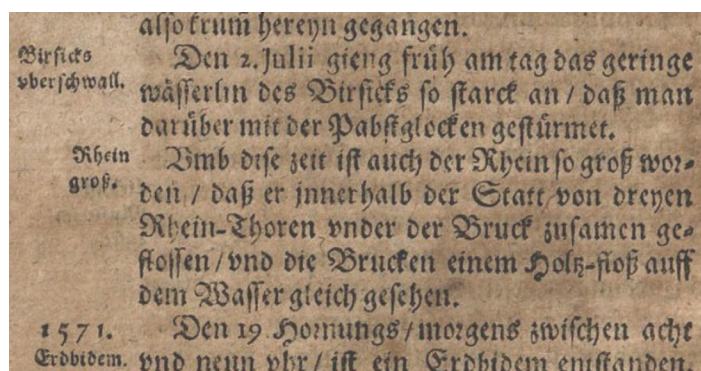 also krum̃ hereyn gegangen.
Birsicks
vberschwall.
Den 2. Julii gieng früh am tag das geringe
wässerlin des Birsicks so starck an / daß man
darüber mit der Pabstglocken gestürmet.
Rhein
groß.
Vmb dise zeit ist auch der Rhein so groß wor⸗
den / daß er jnnerhalb der Statt / von dreyen
Rhein-Thoren vnder der Bruck zusamen ge⸗
flossen / vnd die Brucken einem Holtz-floß auff
dem Wasser gleich gesehen.
1571.
Erdbidem.
Den 19 Hornungs / morgens zwischen acht
vnd neun vhr / ist ein Erdbidem entstanden,